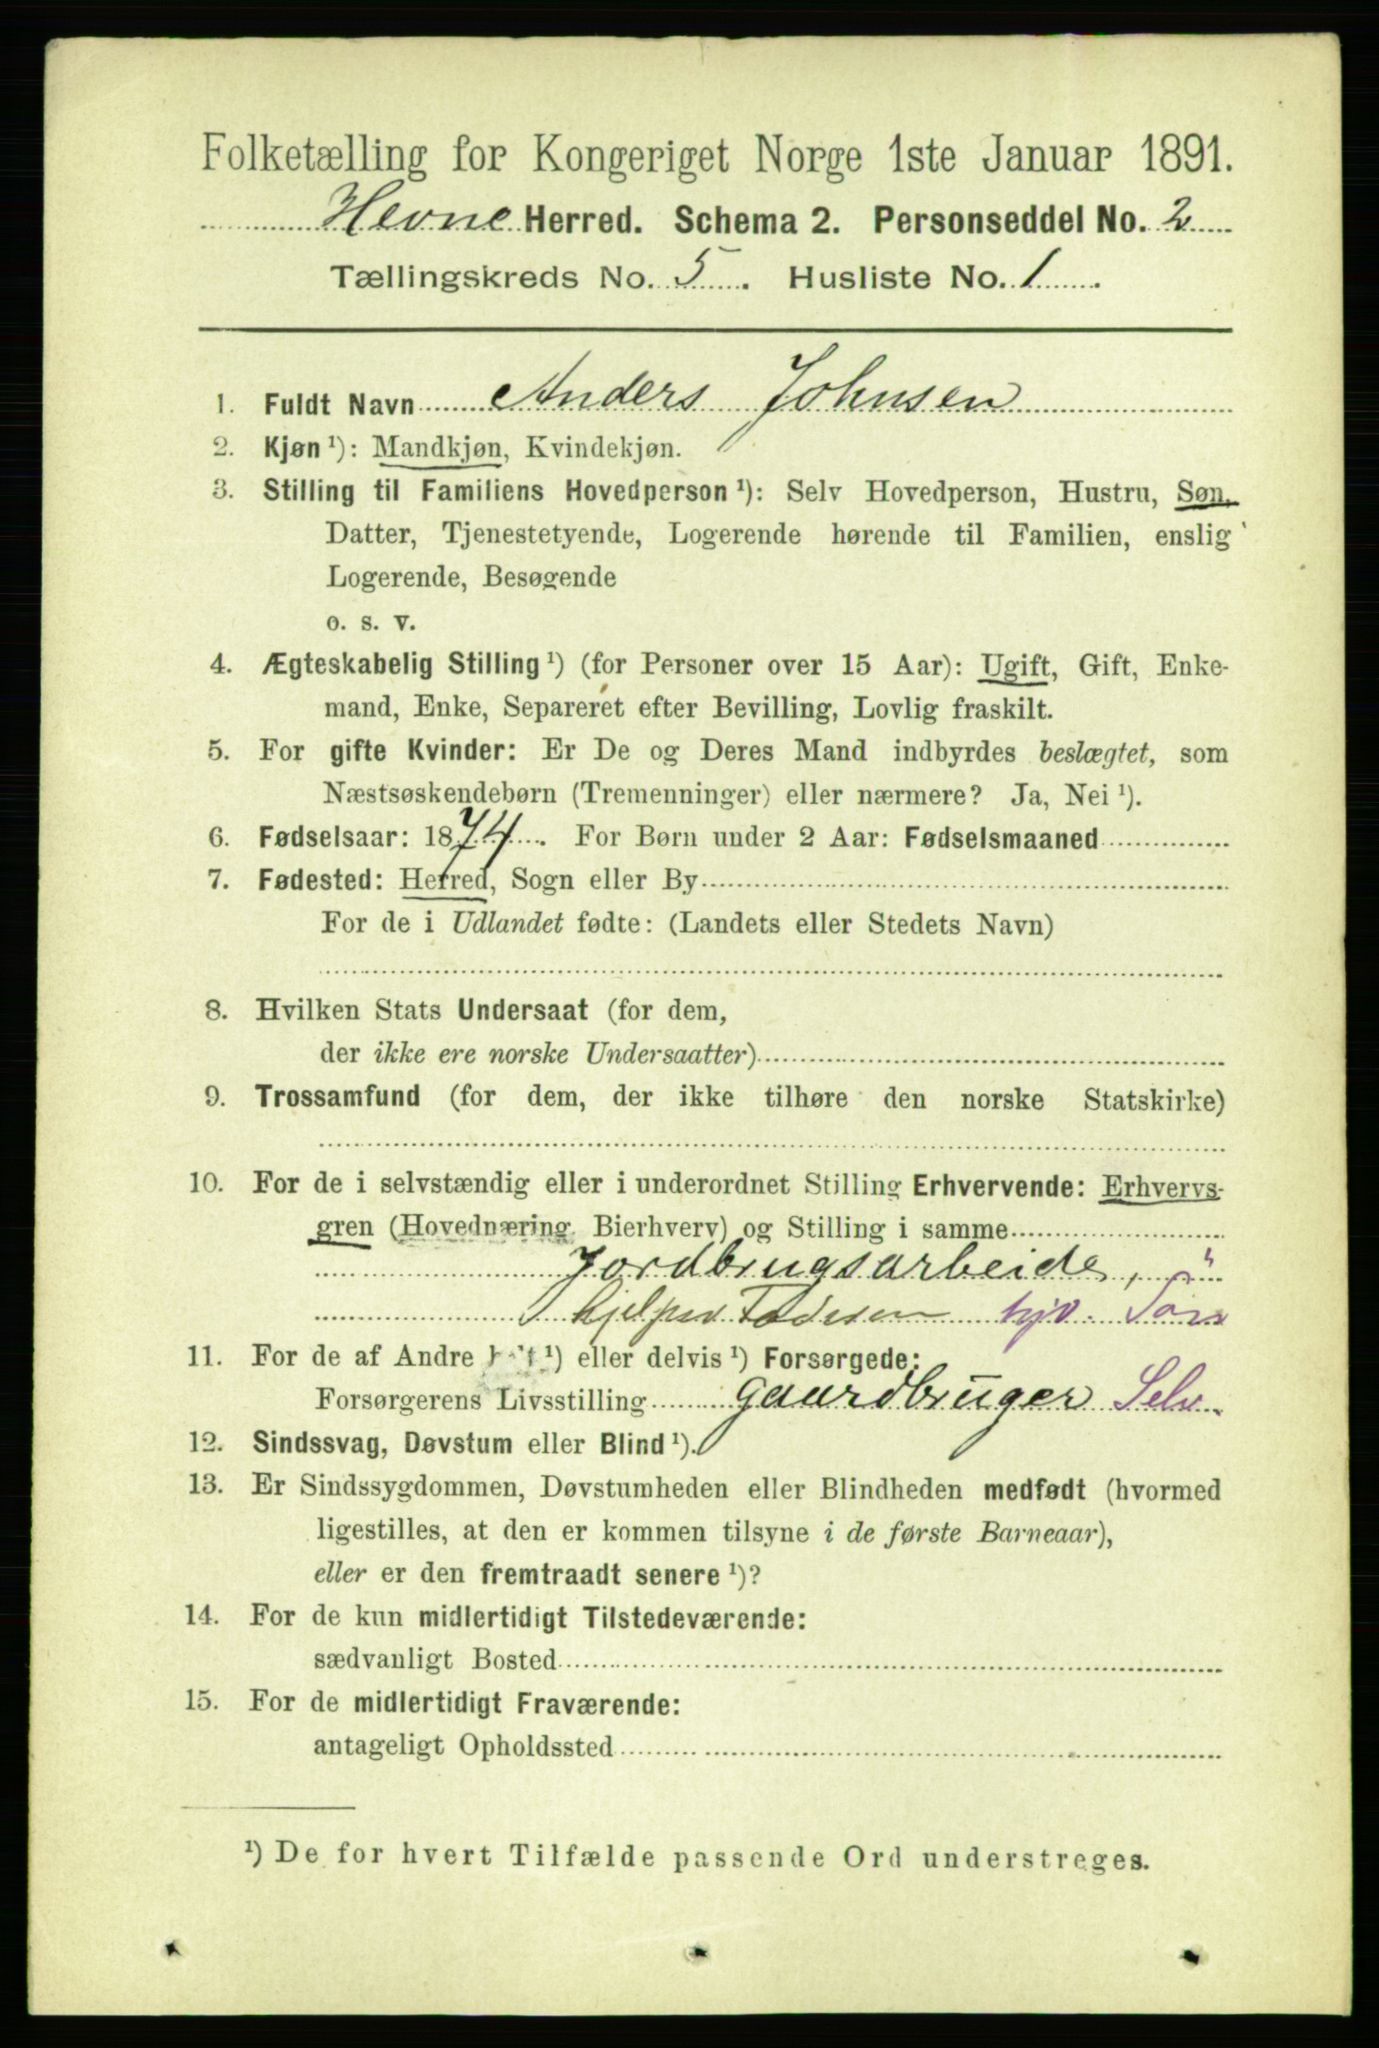 Folketælling for Kongeriget Norge 1ste Januar 1891.
Hevne Herred. Schema 2. Personseddel No. 2
Tællingskreds No. 5. Husliste No. 1.
1. Fuldt Navn Anders Johnsen
2. Kjøn ¹): Mandkjøn, Kvindekjøn.
3. Stilling til Familiens Hovedperson ¹): Selv Hovedperson, Hustru, Søn,
Datter, Tjenestetyende, Logerende hørende til Familien, enslig
Logerende, Besøgende
o. s. v.
4. Ægteskabelig Stilling ¹) (for Personer over 15 Aar): Ugift, Gift, Enke-
mand, Enke, Separeret efter Bevilling, Lovlig fraskilt.
5. For gifte Kvinder: Er De og Deres Mand indbyrdes beslægtet, som
Næstsøskendebørn (Tremenninger) eller nærmere? Ja, Nei ¹).
6. Fødselsaar: 1874. For Børn under 2 Aar: Fødselsmaaned
7. Fødested: Herred, Sogn eller By
For de i Udlandet fødte: (Landets eller Stedets Navn)
8. Hvilken Stats Undersaat (for dem,
der ikke ere norske Undersaatter)
9. Trossamfund (for dem, der ikke tilhøre den norske Statskirke)
10. For de i selvstændig eller i underordnet Stilling Erhvervende: Erhvervs-
gren (Hovednæring, Bierhverv) og Stilling i samme
Jordbrugsarbeide, "
hjelper Faderen hjv. Søn
11. For de af Andre helt ¹) eller delvis ¹) Forsørgede:
Forsørgerens Livsstilling Gaardbruger Selv.
12. Sindssvag, Døvstum eller Blind ¹).
13. Er Sindssygdommen, Døvstumheden eller Blindheden medfødt (hvormed
ligestilles, at den er kommen tilsyne i de første Barneaar),
eller er den fremtraadt senere ¹)?
14. For de kun midlertidigt Tilstedeværende:
sædvanligt Bosted
15. For de midlertidigt Fraværende:
antageligt Opholdssted
¹) De for hvert Tilfælde passende Ord understreges.